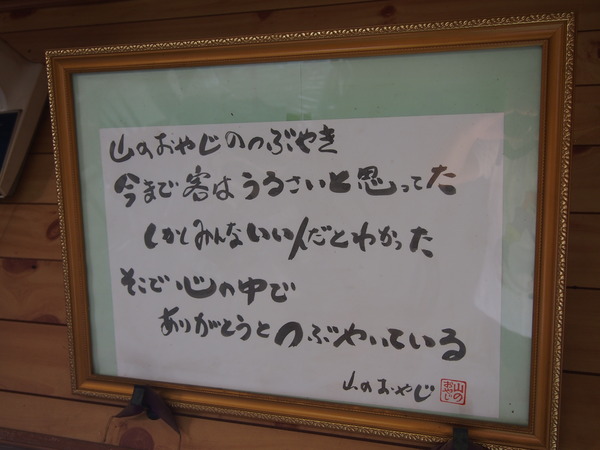 山のおやじのつぶやき
今まで客はうるさいと思ってた
しかしみんないい人だとわかった
そこで心の中で
ありがとうとつぶやいている
山のおやじ
山の
おやじ